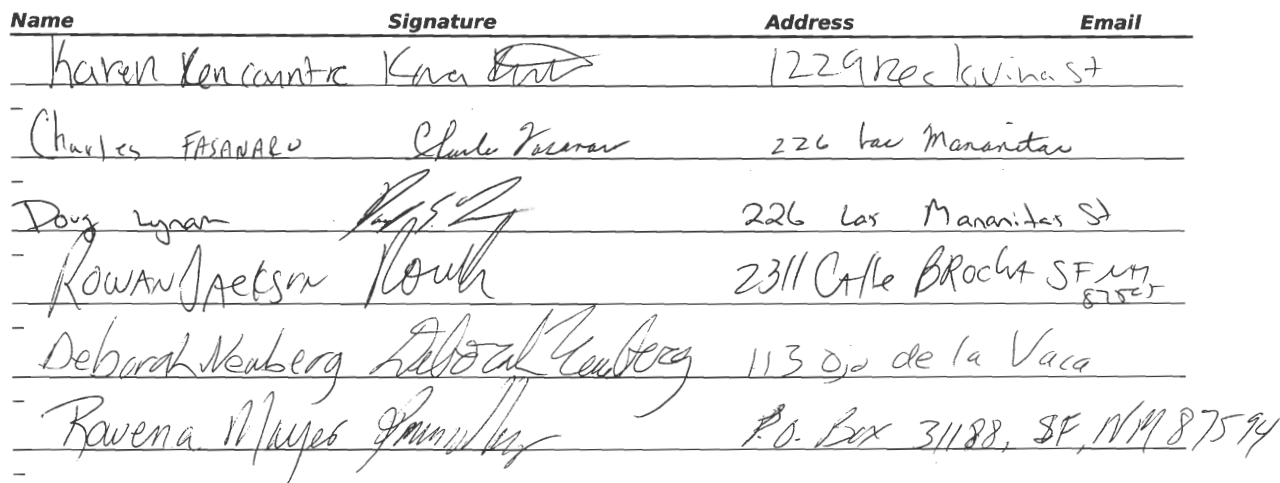 Name Signature Address Email
Karen 1229 St
Charles FASANARO Charles Fasanaro 226 Las Mananitas
Doug Lynam 226 Las Mananitas St
ROWAN JACKSON 2311 Calle BROCHA SF NM
87505
Deborah Newberg Deborah Newberg 113 Ojo de la Vaca
Rowena Mayes P.O. Box 31188, SF, NM 87594